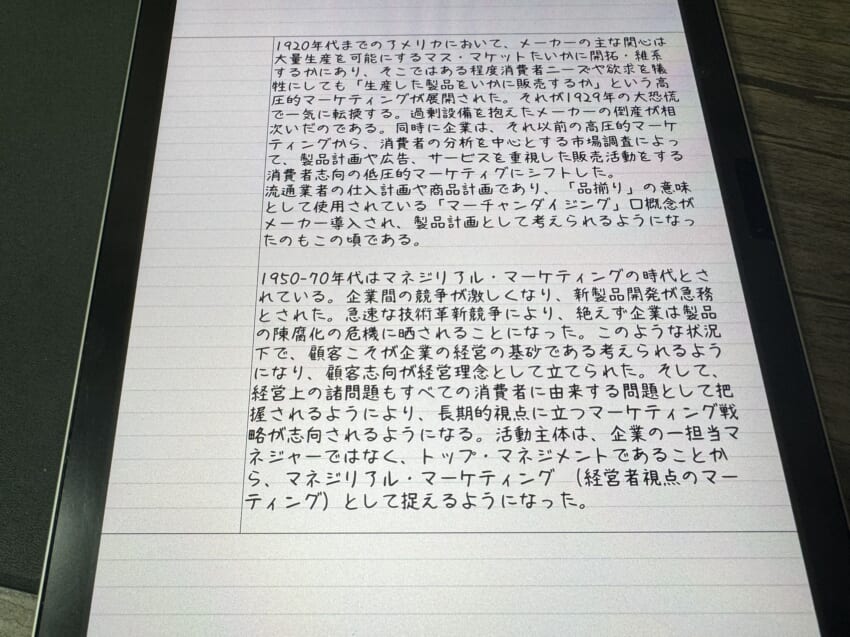 1920年代までのアメリカにおいて、メーカーの主な関心は
大量生産を可能にするマス・マケットたいかに開拓・維系
するかにあり、そこではある程度消費者ニーズや欲求を犠
牲にしても「生産した製品をいかに販売するか」という高
圧的マーケティングが展開された。それが1929年の大恐慌
で一気に転換する。過剰設備を抱えたメーカーの倒産が相
次いだのである。同時に企業は、それ以前の高圧的マーケ
ティングから、消費者の分析を中心とする市場調査によっ
て、製品計画や広告、サービスを重視した販売活動をする
消費者志向の低圧的マーケティグにシフトした。
流通業者の仕入計画や商品計画であり、「品揃り」の意味
として使用されている「マーチャンダイジング」口概念が
メーカー導入され、製品計画として考えられるようになっ
たのもこの頃である。
1950-70年代はマネジリアル・マーケティングの時代とさ
れている。企業間の競争が激しくなり、新製品開発が急務
とされた。急速な技術革新競争により、絶えず企業は製品
の陳腐化の危機に晒されることになった。このような状況
下で、顧客こそが企業の経営の基砂である考えられるよう
になり、顧客志向が経営理念として立てられた。そして、
経営上の諸問題もすべての消費者に由来する問題として把
握されるようにより、長期的視点に立つマーケティング戦
略が志向されるようになる。活動主体は、企業の一担当マ
ネジャーではなく、トップ・マネジメントであることか
ら、マネジリアル・マーケティング （経営者視点のマー
ティング）として捉えるようになった。